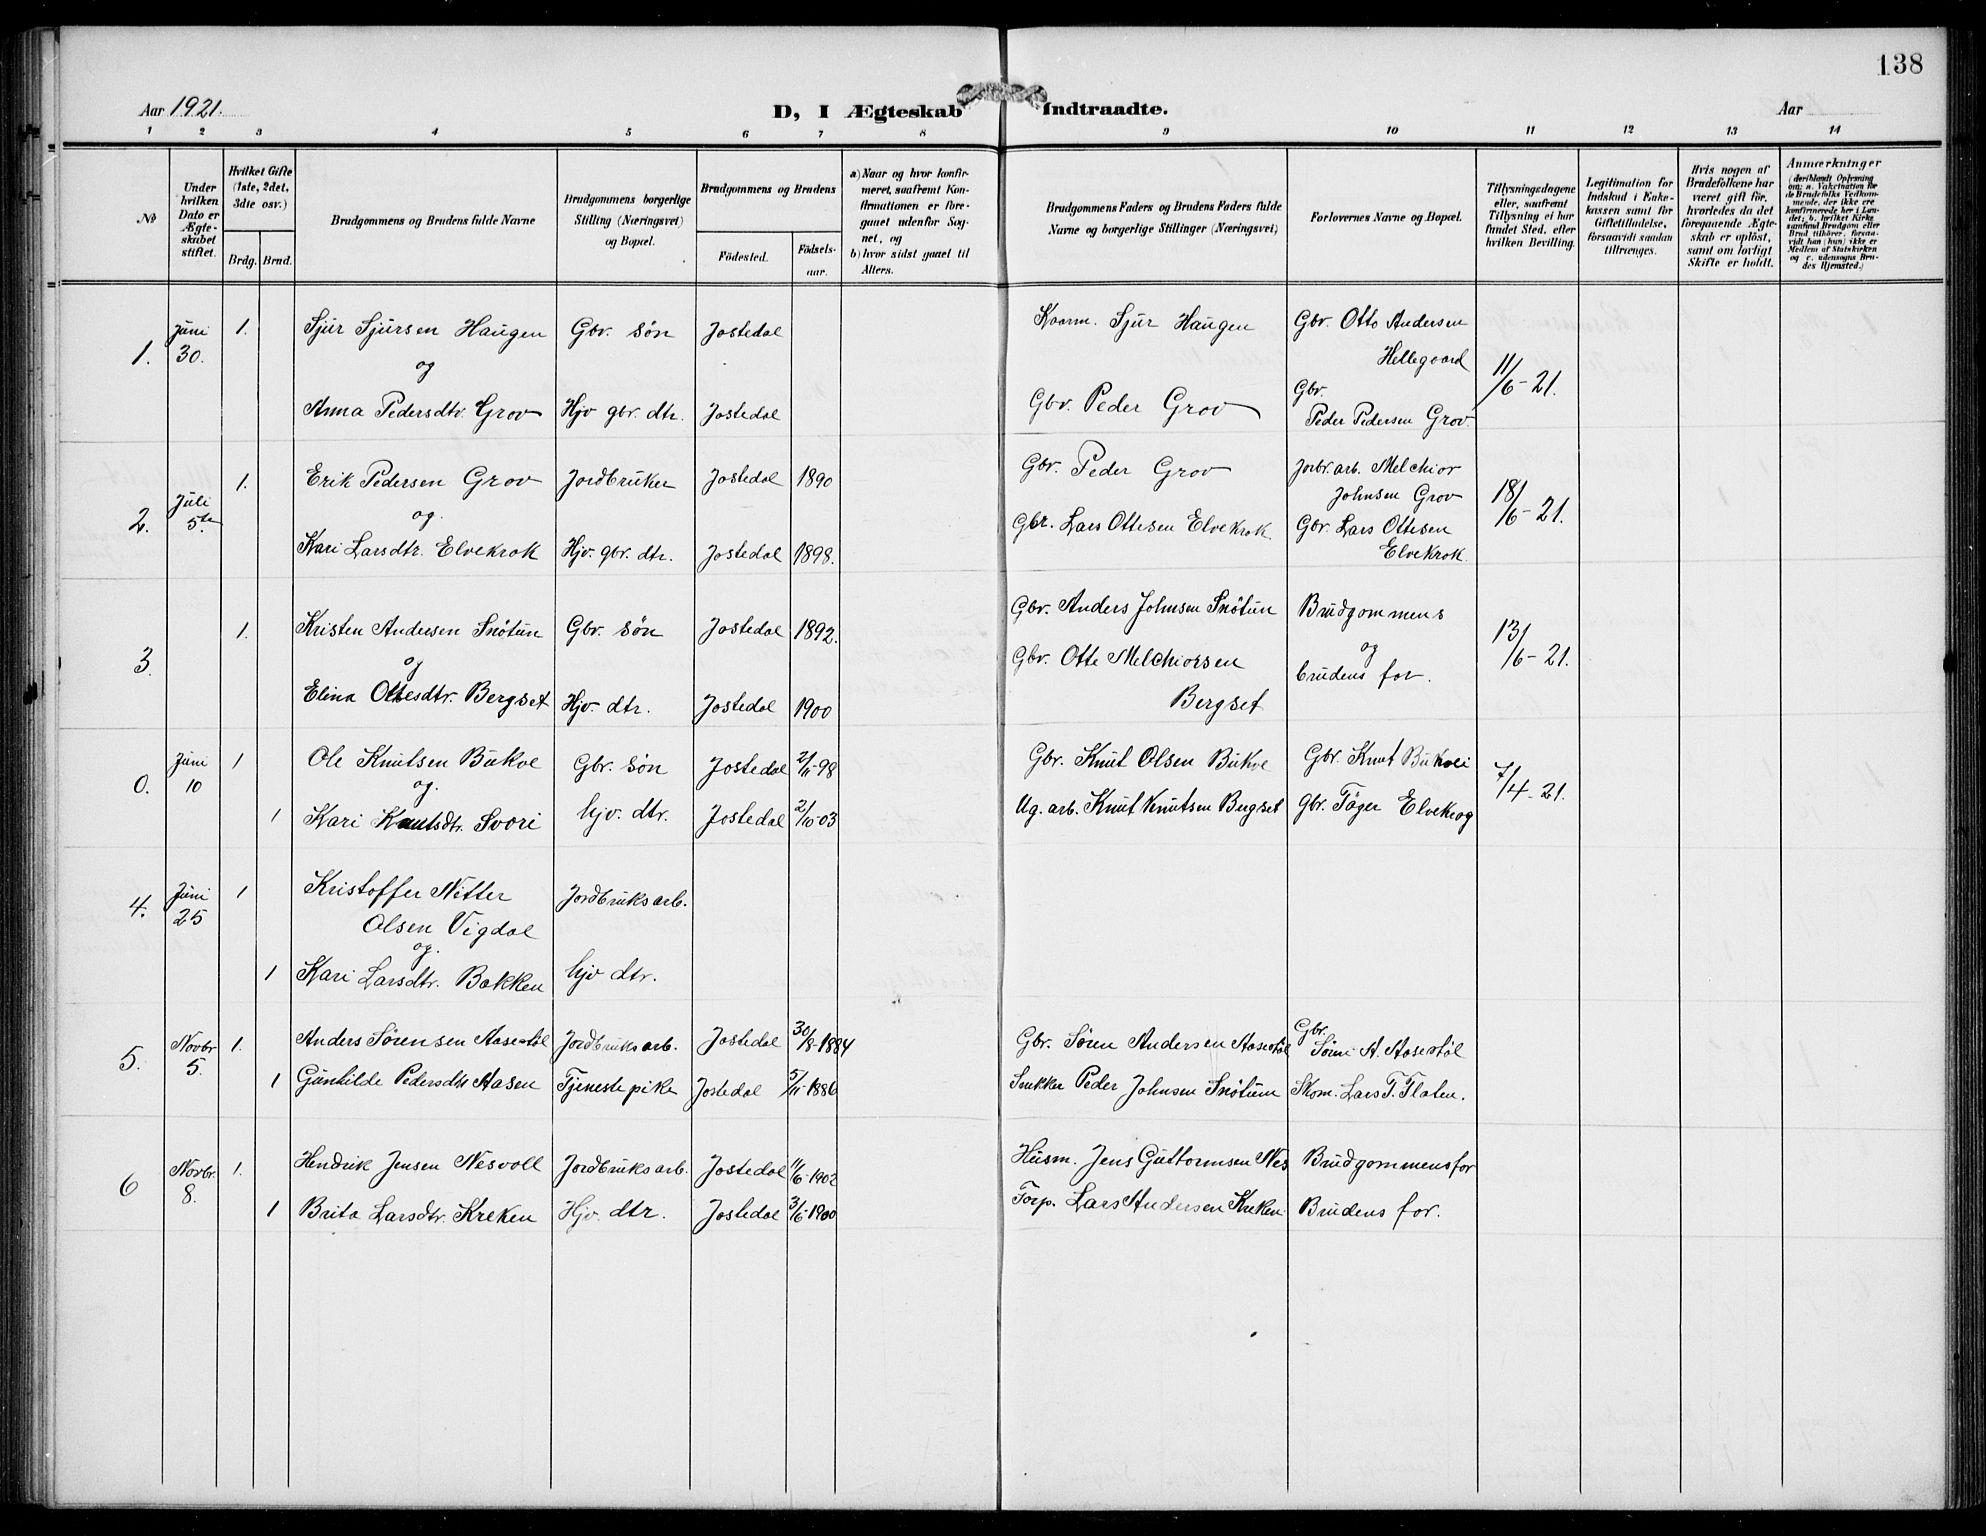 138
Aar 1921.
D, I Ægteskab Indtraadte.
Aar
1 2 3 4 5 6 7 8 9 10 11 12 13 14
No
Under hvilken Dato er Ægteskabet stiftet.
Hvilket Gifte (1ste, 2det, 3die osv.)
Brdg. Brud.
Brudgommens og Brudens fulde Navne
Brudgommens borgerlige Stilling (Næringsvei) og Bopæl.
Brudgommens og Brudens
Födested. Födsels-aar.
a) Naar og hvor konfirmeret, saafremt Konfirmationen er foregaaet udenfor Sognet, og
b) hvor sidst gaaet til Alters.
Brudgommens Faders og Brudens Faders fulde Navne og borgerlige Stillinger (Næringsvei)
Forlovernes Navne og Bopæl.
Tillysningsdagene eller, saafremt Tillysning ei har fundet Sted, efter hvilken Bevilling.
Legitimation for Indskud i Enkekassen samt for Giftetilladelse, forsaavidt saadan tiltrænges.
Hvis nogen af Brudefolkene har været gift för, hvorledes da det foregaaende Ægteskab er oplöst, samt om lovligt Skifte er holdt.
Anmærkninger (deriblandt Oplysning om: a. Vakcination for de Brudefolks Vedkommende, der ikke ere konfirmerede her i Landet; b. hvilket Kirkesamfund Brudgom eller Brud tilhörer, forsaavidt han (hun) ikke er Medlem af Statskirken og c. udensogns Brudes Hjemsted.)
1. Juni 30. 1. Sjur Sjursen Haugen Gbr. søn Jostedal Kaarm. Sjur Haugen Gbr. Otto Andersen
Hellegaard
og 11/6-21.
Anna Pedersdtr. Grov Hjv gbr. dtr. Jostedal Gbr. Peder Grov Gbr.
Peder Pedersen Grov.
2. Juli 5te 1. Erik Pedersen Grov Jordbruker Jostedal 1890 Gbr. Peder Grov Jorbr. arb. Melchior
Johnsen Grov
og. 18/6-21.
Kari Larsdtr. Elvekrok Hjv. gbr. dtr. Jostedal 1898. Gbr. Lars Ottesen Elvekrok Gbr. Lars Ottesen
Elvekrok
3. 1. Kristen Andersen Snøtun Gbr. søn Jostedal 1892. Gbr. Anders Johnsen Snøtun Brudgommens
og og 13/6-21.
Elina Ottesdtr. Bergset Hjv. dtr. Jostedal 1900 Gbr. Otte Melchiorsen brudens for.
Bergset
0. Juni 10 1 Ole Knutsen Bukve Gbr. søn Jostedal 2/11-98 Gbr. Knut Olsen Bukve Gbr. Knut Bukvei
og. 7/4-21.
1 Kari Knutsdtr. Svori hjv. dtr. Jostedal 2/10-03 Ug. arb. Knut Knutsen Bergset gbr. Tøger Elvekrog
4. Juni 25 1 Kristoffer Nitter Jordbruksarb.
Olsen Vigdal
og.
1 Kari Larsdtr. Bakken hjv dtr.
5. Novbr 5. 1. Anders Sørensen Aasestøl Jordbruksarb. Jostedal 30/8-1884 Gbr. Søren Andersen Aasestøl Gbr.
Søren A. Aasestøl
1 Gunhilde Pedersdtr Aasen Tjenestepike Jostedal 5/11-1886 Snekker Peder Johnsen Snøtun Skom. Lars T. Flaten.
6 Novbr. 8. 1. Hendrik Jensen Nesvoll Jordbruksarb. Jostedal 11/6-1902 Husm. Jens Guttormsen Nes Brudgommens for
1 Brita Larsdtr. Kreken Hjv. dtr. Jostedal 3/6-1900 Forp. Lars Andersen Kreken Brudens for.